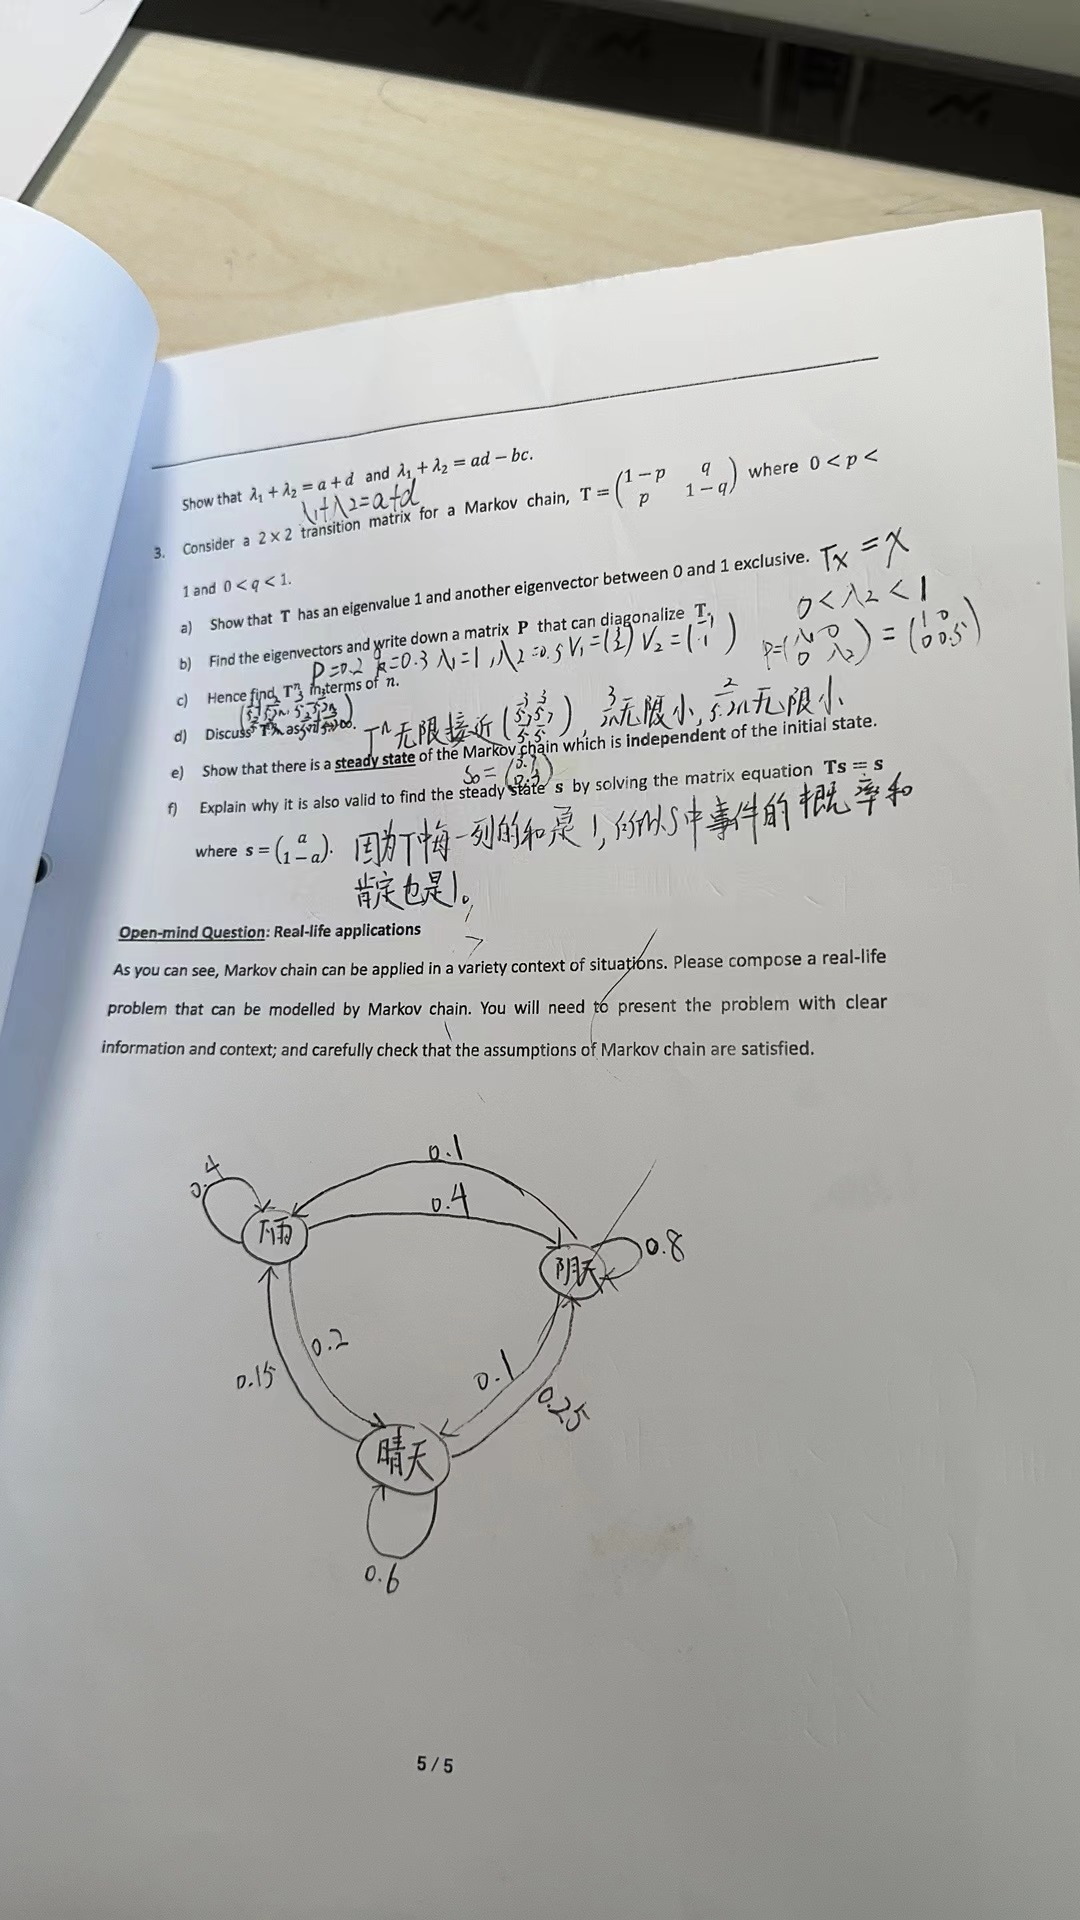 Show that λ₁ + λ₂ = a + d and λ₁ + λ₂ = ad − bc.
λ₁+λ₂=a+d
3. Consider a 2 × 2 transition matrix for a Markov chain, T = (1 − p q p 1 − q) where 0 < p <
1 and 0 < q < 1.
a) Show that T has an eigenvalue 1 and another eigenvector between 0 and 1 exclusive. Tx = x
0<λ2<1
b) Find the eigenvectors and write down a matrix P that can diagonalize T.
P=0.2 =0.3 λ₁=1, λ2=0.5 V₁= V₂=
P=(λ₁ 0 0 λ₂) = (1 0 0 0.5)
c) Hence find Tⁿ in terms of n.
d) Discuss Tⁿ as
Tⁿ无限接近 无限小, 无限小
e) Show that there is a steady state of the Markov chain which is independent of the initial state.
S₀=
f) Explain why it is also valid to find the steady state s by solving the matrix equation Ts = s
where s = (a 1 − a).
因为T中每一列的和是1,所以S中事件的概率和
肯定也是1。
Open-mind Question: Real-life applications
As you can see, Markov chain can be applied in a variety context of situations. Please compose a real-life
problem that can be modelled by Markov chain. You will need to present the problem with clear
information and context; and carefully check that the assumptions of Markov chain are satisfied.
0.1
0.4
0.4
下雨
阴天
0.8
0.2
0.15
0.1
0.25
晴天
0.6
5 / 5